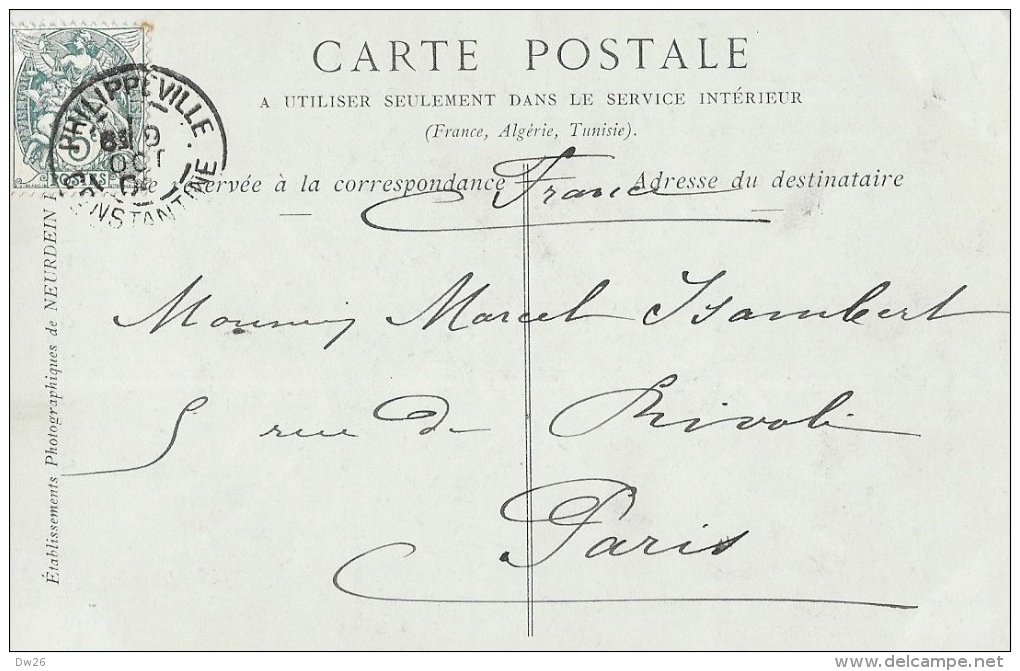 CARTE POSTALE
A UTILISER SEULEMENT DANS LE SERVICE INTÉRIEUR
(France, Algérie, Tunisie).
PHILIPPEVILLE
CONSTANTINE
5c
POSTES
réservée à la correspondance
Adresse du destinataire
France
Monsieur Marcel Isambert
5 rue de Rivoli
Paris
Établissements Photographiques de NEURDEIN
Dw26
delcampe.net